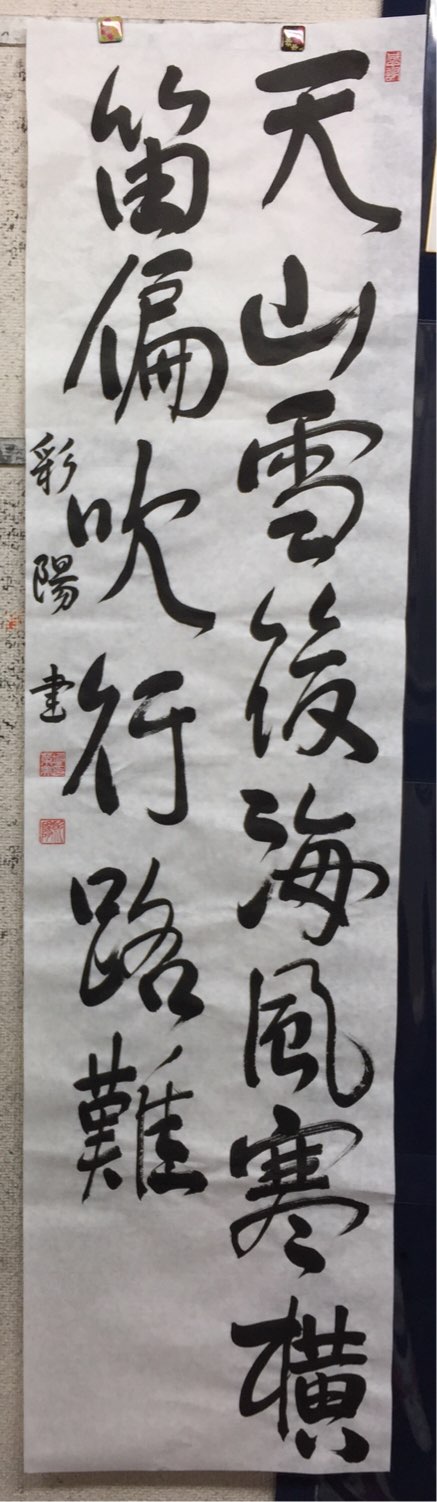 天山雪後海風寒横
笛偏吹行路難
彩陽書